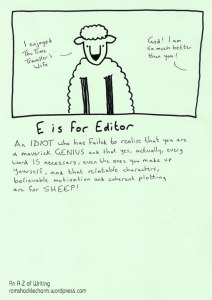 I enjoyed
The Time
Traveller's
Wife
God! I am
so much better
than you!
E is for Editor
An IDIOT who has failed to realise that you are
a maverick GENIUS and that yes, actually, every
word IS necessary, even the ones you make up
yourself, and that relatable characters,
believable motivation and coherent plotting
are for SHEEP!
An A-Z of Writing
ramshacklecharm.wordpress.com